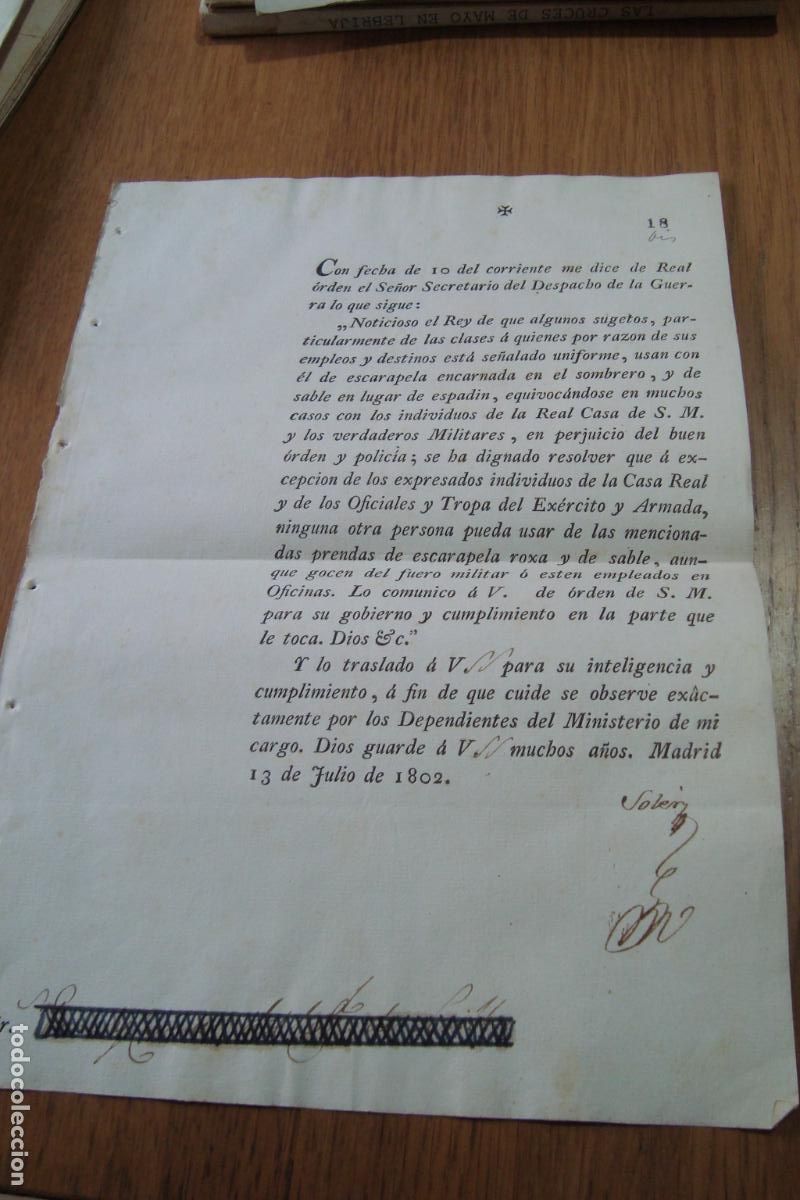 LAS CRUCES DE MAYO EN LEBRIJA
✠
18
bis
Con fecha de 10 del corriente me dice de Real
órden el Señor Secretario del Despacho de la Guer-
ra lo que sigue:
„Noticioso el Rey de que algunos sugetos, par-
ticularmente de las clases á quienes por razon de sus
empleos y destinos está señalado uniforme, usan con
él de escarapela encarnada en el sombrero, y de
sable en lugar de espadin, equivocándose en muchos
casos con los individuos de la Real Casa de S. M.
y los verdaderos Militares, en perjuicio del buen
órden y policía; se ha dignado resolver que á ex-
cepcion de los expresados individuos de la Casa Real
y de los Oficiales y Tropa del Exército y Armada,
ninguna otra persona pueda usar de las menciona-
das prendas de escarapela roxa y de sable, aun-
que gocen del fuero militar ó esten empleados en
Oficinas. Lo comunico á V. de órden de S. M.
para su gobierno y cumplimiento en la parte que
le toca. Dios &c.”
Y lo traslado á V SS para su inteligencia y
cumplimiento, á fin de que cuide se observe exâc-
tamente por los Dependientes del Ministerio de mi
cargo. Dios guarde á V SS muchos años. Madrid
13 de Julio de 1802.
Soler
todocoleccion